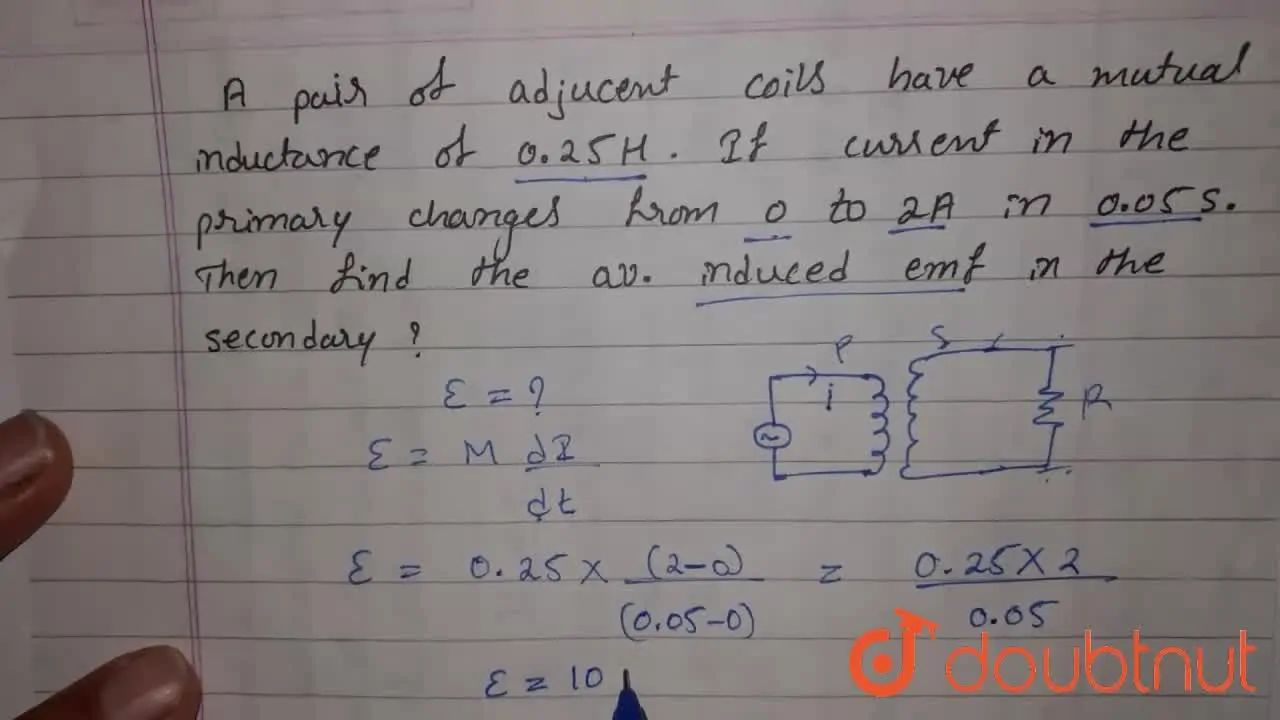 A pair of adjucent coils have a mutual
inductance of 0.25H. If current in the
primary changes from 0 to 2A in 0.05 S.
Then find the av. induced emf in the
secondary ?
ε = ?
ε = M dI
dt
P S
i
R
~
ε = 0.25 × (2-0) = 0.25 × 2
(0.05-0) 0.05
ε = 10
doubtnut